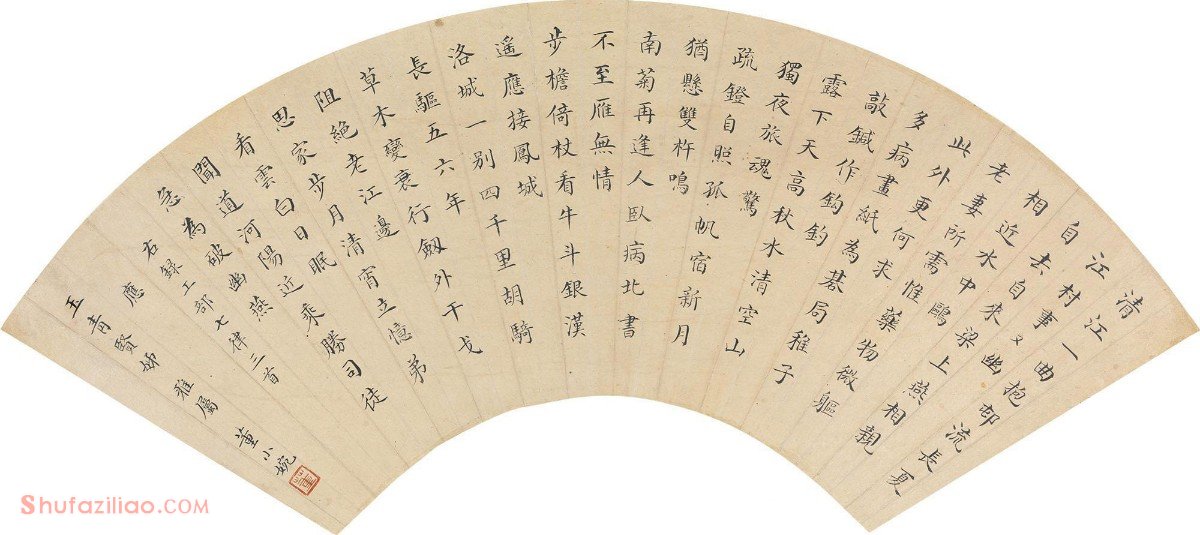 清江一曲抱邨流長夏
江村事又幽
自去自來梁上燕相親
相近水中鷗
老妻畫紙為棊局稚子
敲鍼作鈎釣
多病所需惟藥物微軀
此外更何求
露下天高秋水清空山
獨夜旅魂驚
疏鐙自照孤帆宿新月
猶懸雙杵鳴
南菊再逢人臥病北書
不至雁無情
步檐倚杖看牛斗銀漢
遙應接鳳城
洛城一別四千里胡騎
長驅五六年
草木變衰行劒外干戈
阻絕老江邊
思家步月清宵立憶弟
看雲白日眠
聞道河陽近乘勝司徒
急為破幽燕
右錄工部七律三首
應
玉青賢姊雅屬 董小婉
Shufaziliao.COM